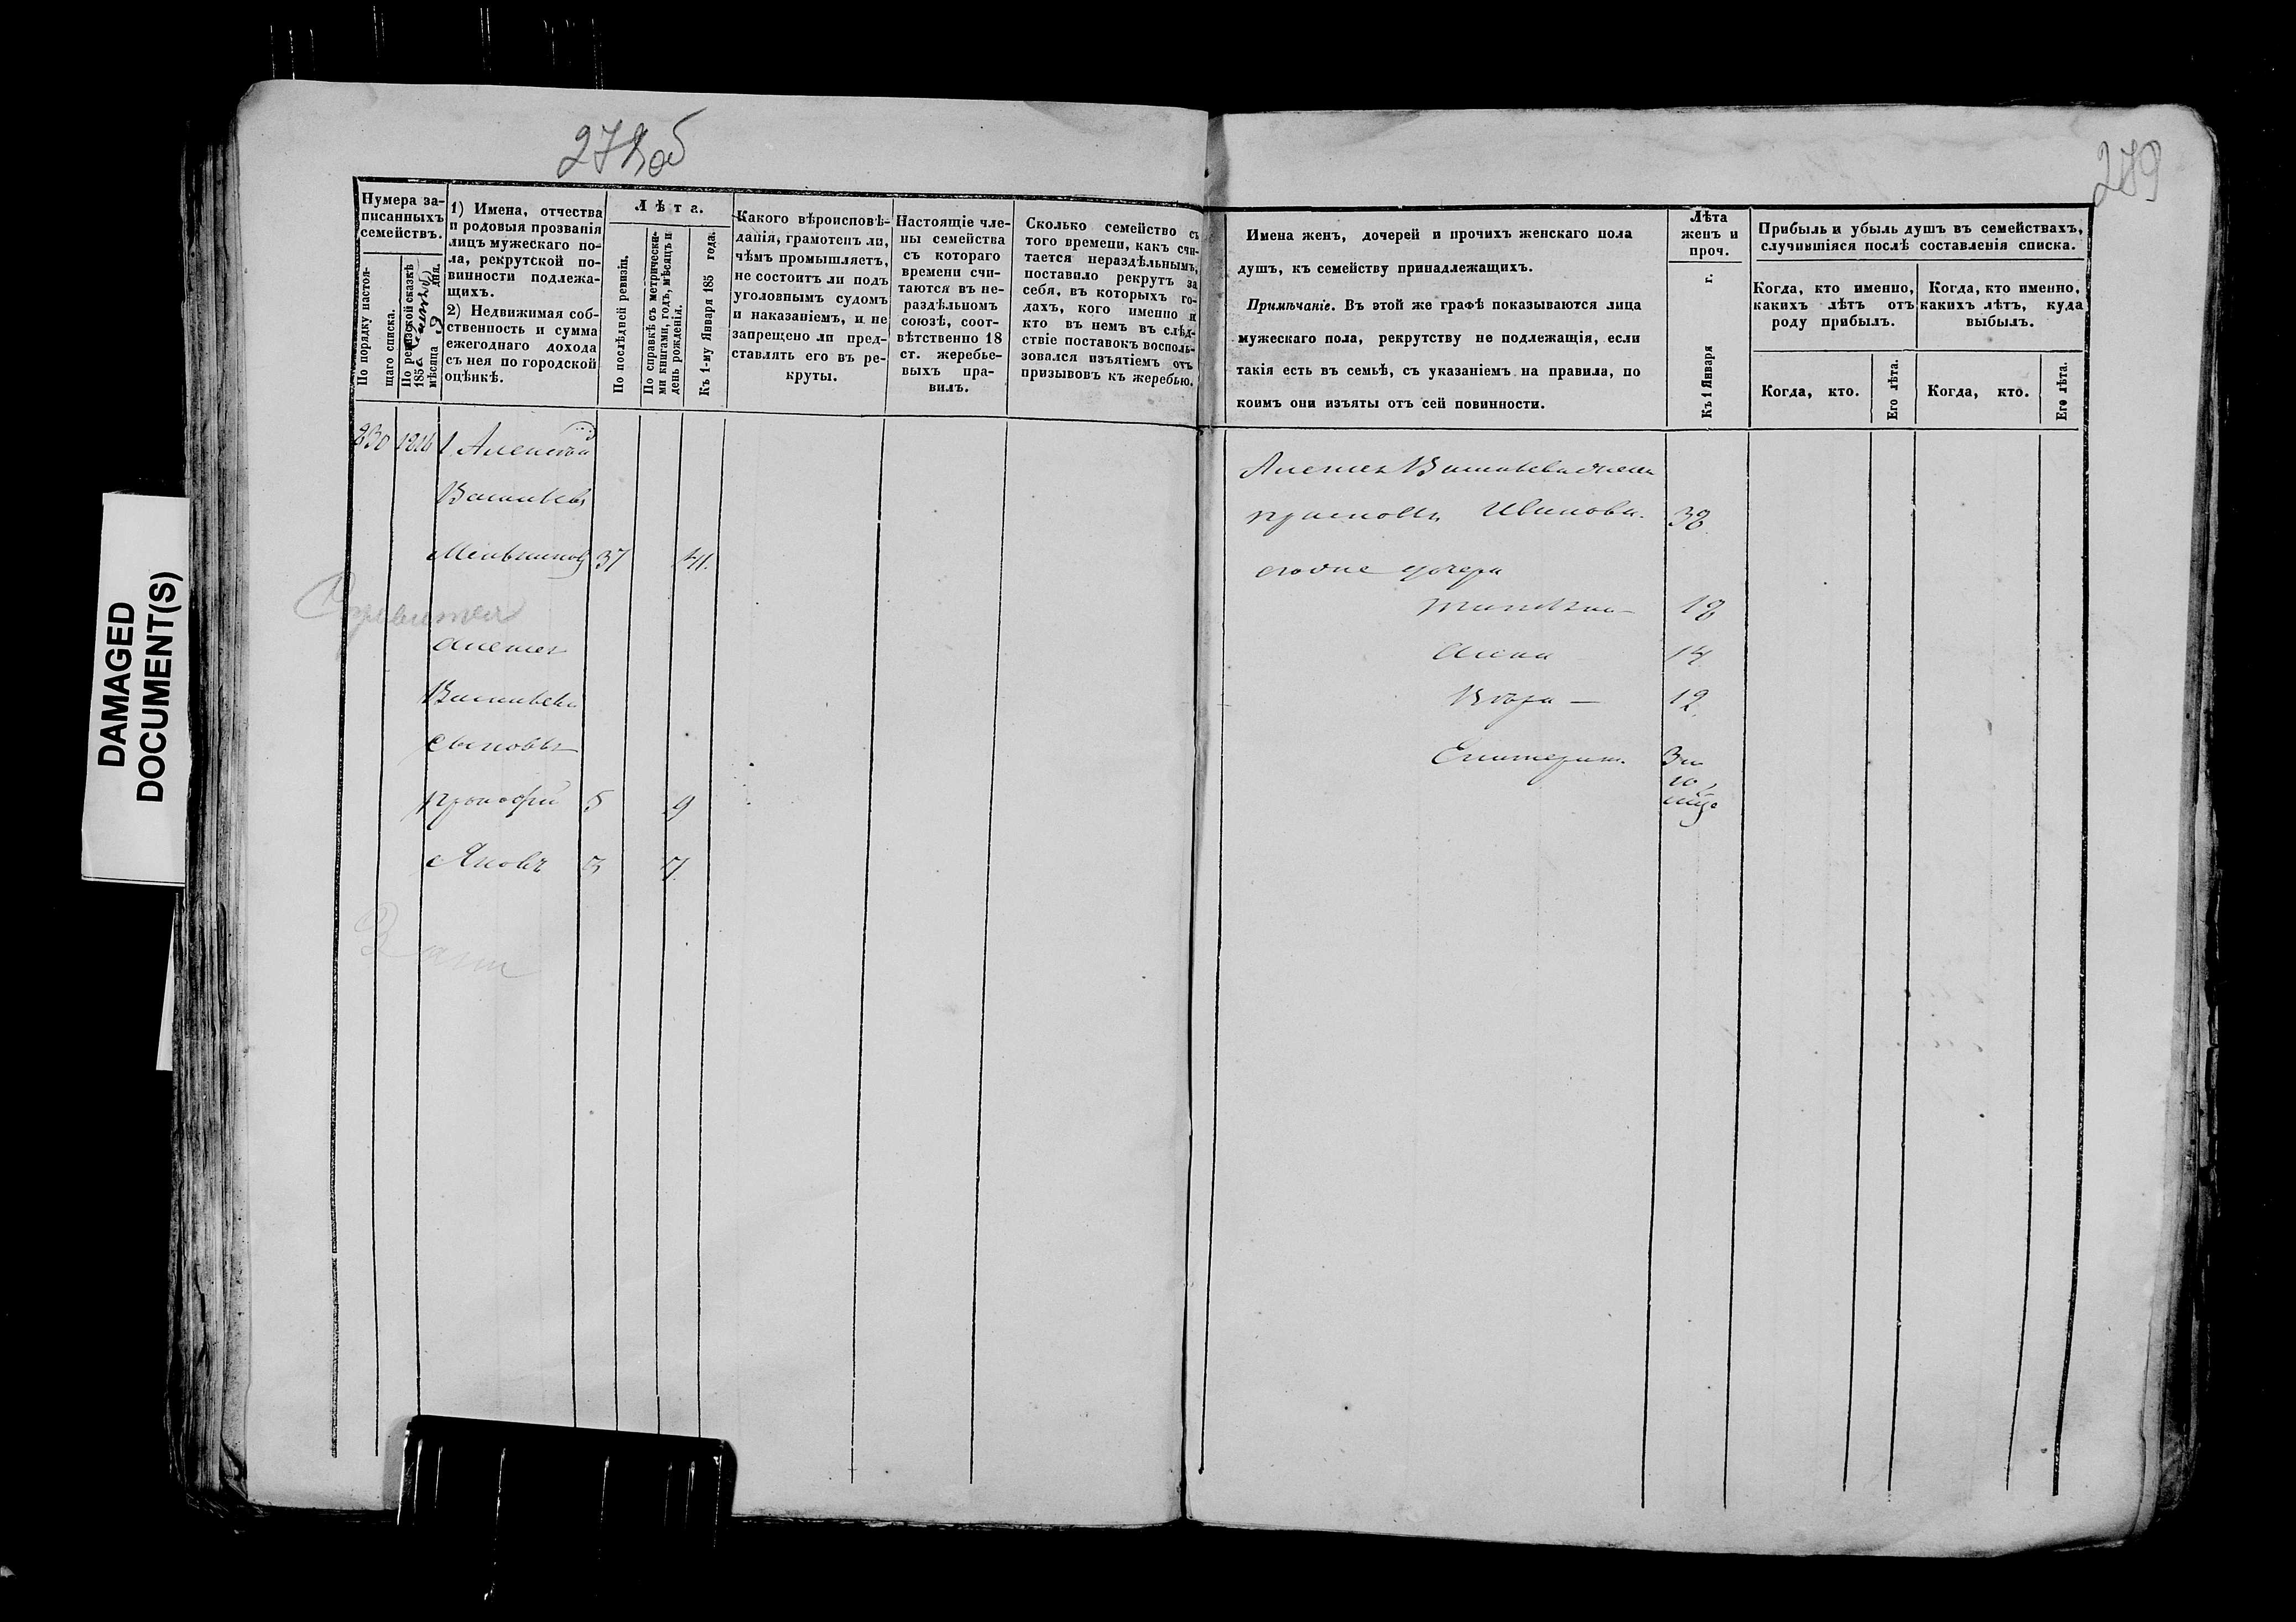 278 об
279
DAMAGED
DOCUMENT(S)
Нумера за-
писанныхъ
семействъ.
По порядку настоя-
щаго списка.
По ревизской сказкѣ
185
мѣсяца 9 дня.
1) Имена, отчества
и родовыя прозванія
лицъ мужескаго по-
ла, рекрутской по-
винности подлежа-
щихъ.
2) Недвижимая соб-
ственность и сумма
ежегоднаго дохода
съ нея по городской
оцѣнкѣ.
Лѣта.
По послѣдней ревизіи.
По справкѣ съ метрически-
ми книгами, годъ, мѣсяцъ и
день рожденія.
Къ 1-му Января 185 года.
Какого вѣроисповѣ-
данія, грамотенъ ли,
чѣмъ промышляетъ,
не состоитъ ли подъ
уголовнымъ судомъ
и наказаніемъ, и не
запрещено ли пред-
ставлять его въ ре-
круты.
Настоящіе чле-
ны семейства
съ котораго
времени счи-
таются въ не-
раздѣльномъ
союзѣ, соот-
вѣтственно 18
ст. жеребье-
выхъ пра-
вилъ.
Сколько семейство съ
того времени, какъ счи-
тается нераздѣльнымъ,
поставило рекрутъ за
себя, въ которыхъ го-
дахъ, кого именно и
кто въ немъ въ слѣд-
ствіе поставокъ восполь-
зовался изъятіемъ отъ
призывовъ къ жеребью.
Имена женъ, дочерей и прочихъ женскаго пола
душъ, къ семейству принадлежащихъ.
Примѣчаніе. Въ этой же графѣ показываются лица
мужескаго пола, рекрутству не подлежащія, если
такія есть въ семьѣ, съ указаніемъ на правила, по
коимъ они изъяты отъ сей повинности.
Лѣта
женъ и
проч.
Къ 1 Января г.
Прибыль и убыль душъ въ семействахъ,
случившіяся послѣ составленія списка.
Когда, кто именно,
какихъ лѣтъ отъ
роду прибылъ.
Когда, кто именно,
какихъ лѣтъ, куда
выбылъ.
Когда, кто.
Его лѣта.
Когда, кто.
Его лѣта.
830 1216 1 Алексѣй
Васильевъ
Мельниковъ 37 41.
Алексѣя
Васильева
сыновья
Прокофій 5 9
Яковъ 3 7.
Алексѣя Васильева жена
Прасковья Иванова. 38.
его же дочери
Татьяна 18
Анна 14
Вѣра 12.
Екатерина.